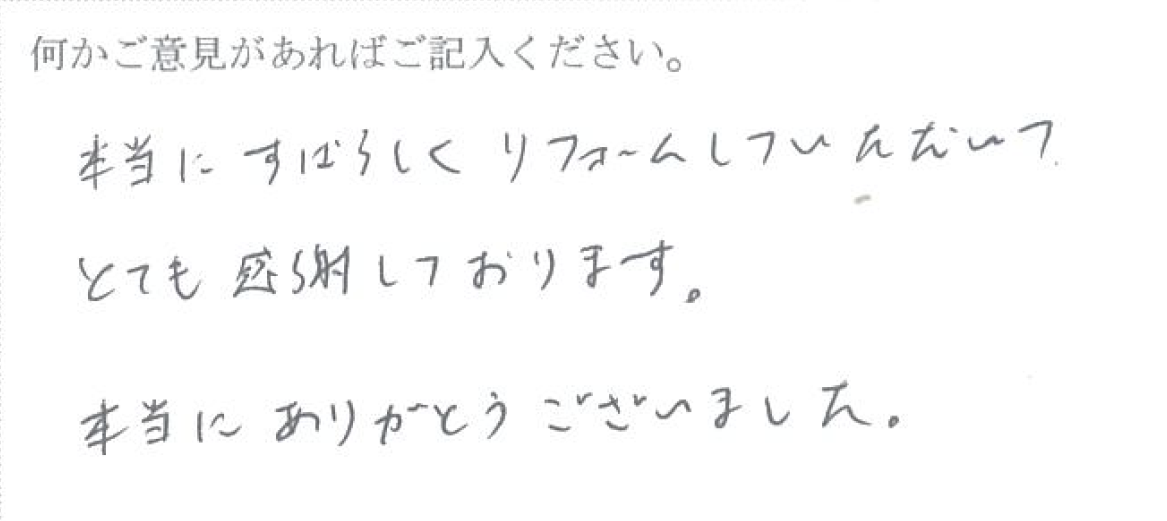 何かご意見があればご記入ください。
本当にすばらしくリフォームしていただいて
とても感謝しております。
本当にありがとうございました。